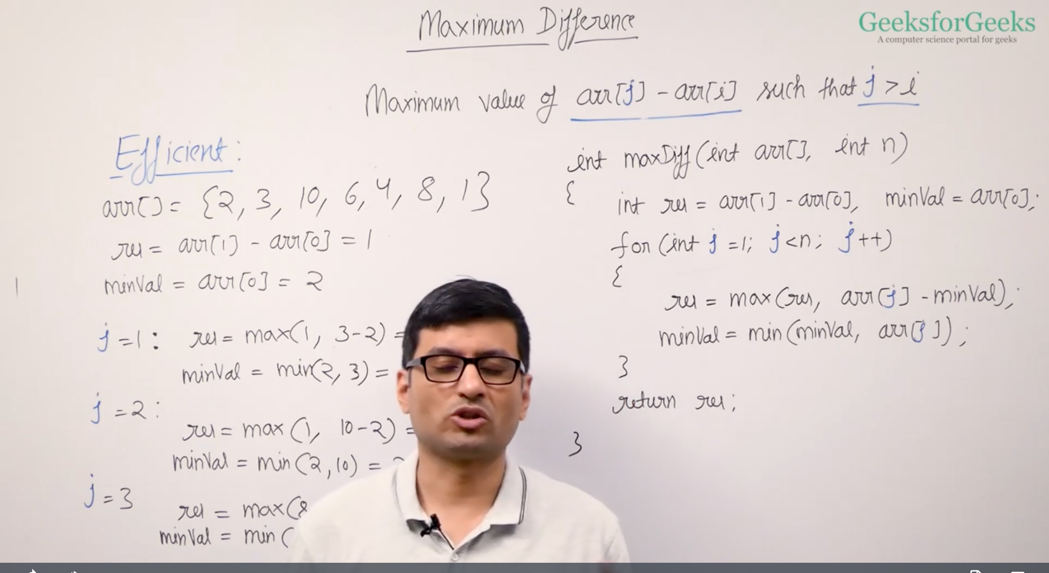 Maximum Difference
GeeksforGeeks
A computer science portal for geeks
Maximum value of arr[j] - arr[i] such that j > i
Efficient:
arr[] = {2, 3, 10, 6, 4, 8, 1}
res = arr[1] - arr[0] = 1
minVal = arr[0] = 2
j = 1: res = max(1, 3-2) =
minVal = min(2, 3) =
j = 2:
res = max(1, 10-2) =
minVal = min(2, 10) =
j = 3
res = max(8
minVal = min(
int maxDiff(int arr[], int n)
{
int res = arr[1] - arr[0], minVal = arr[0];
for (int j = 1; j < n; j++)
{
res = max(res, arr[j] - minVal);
minVal = min(minVal, arr[j]);
}
return res;
}